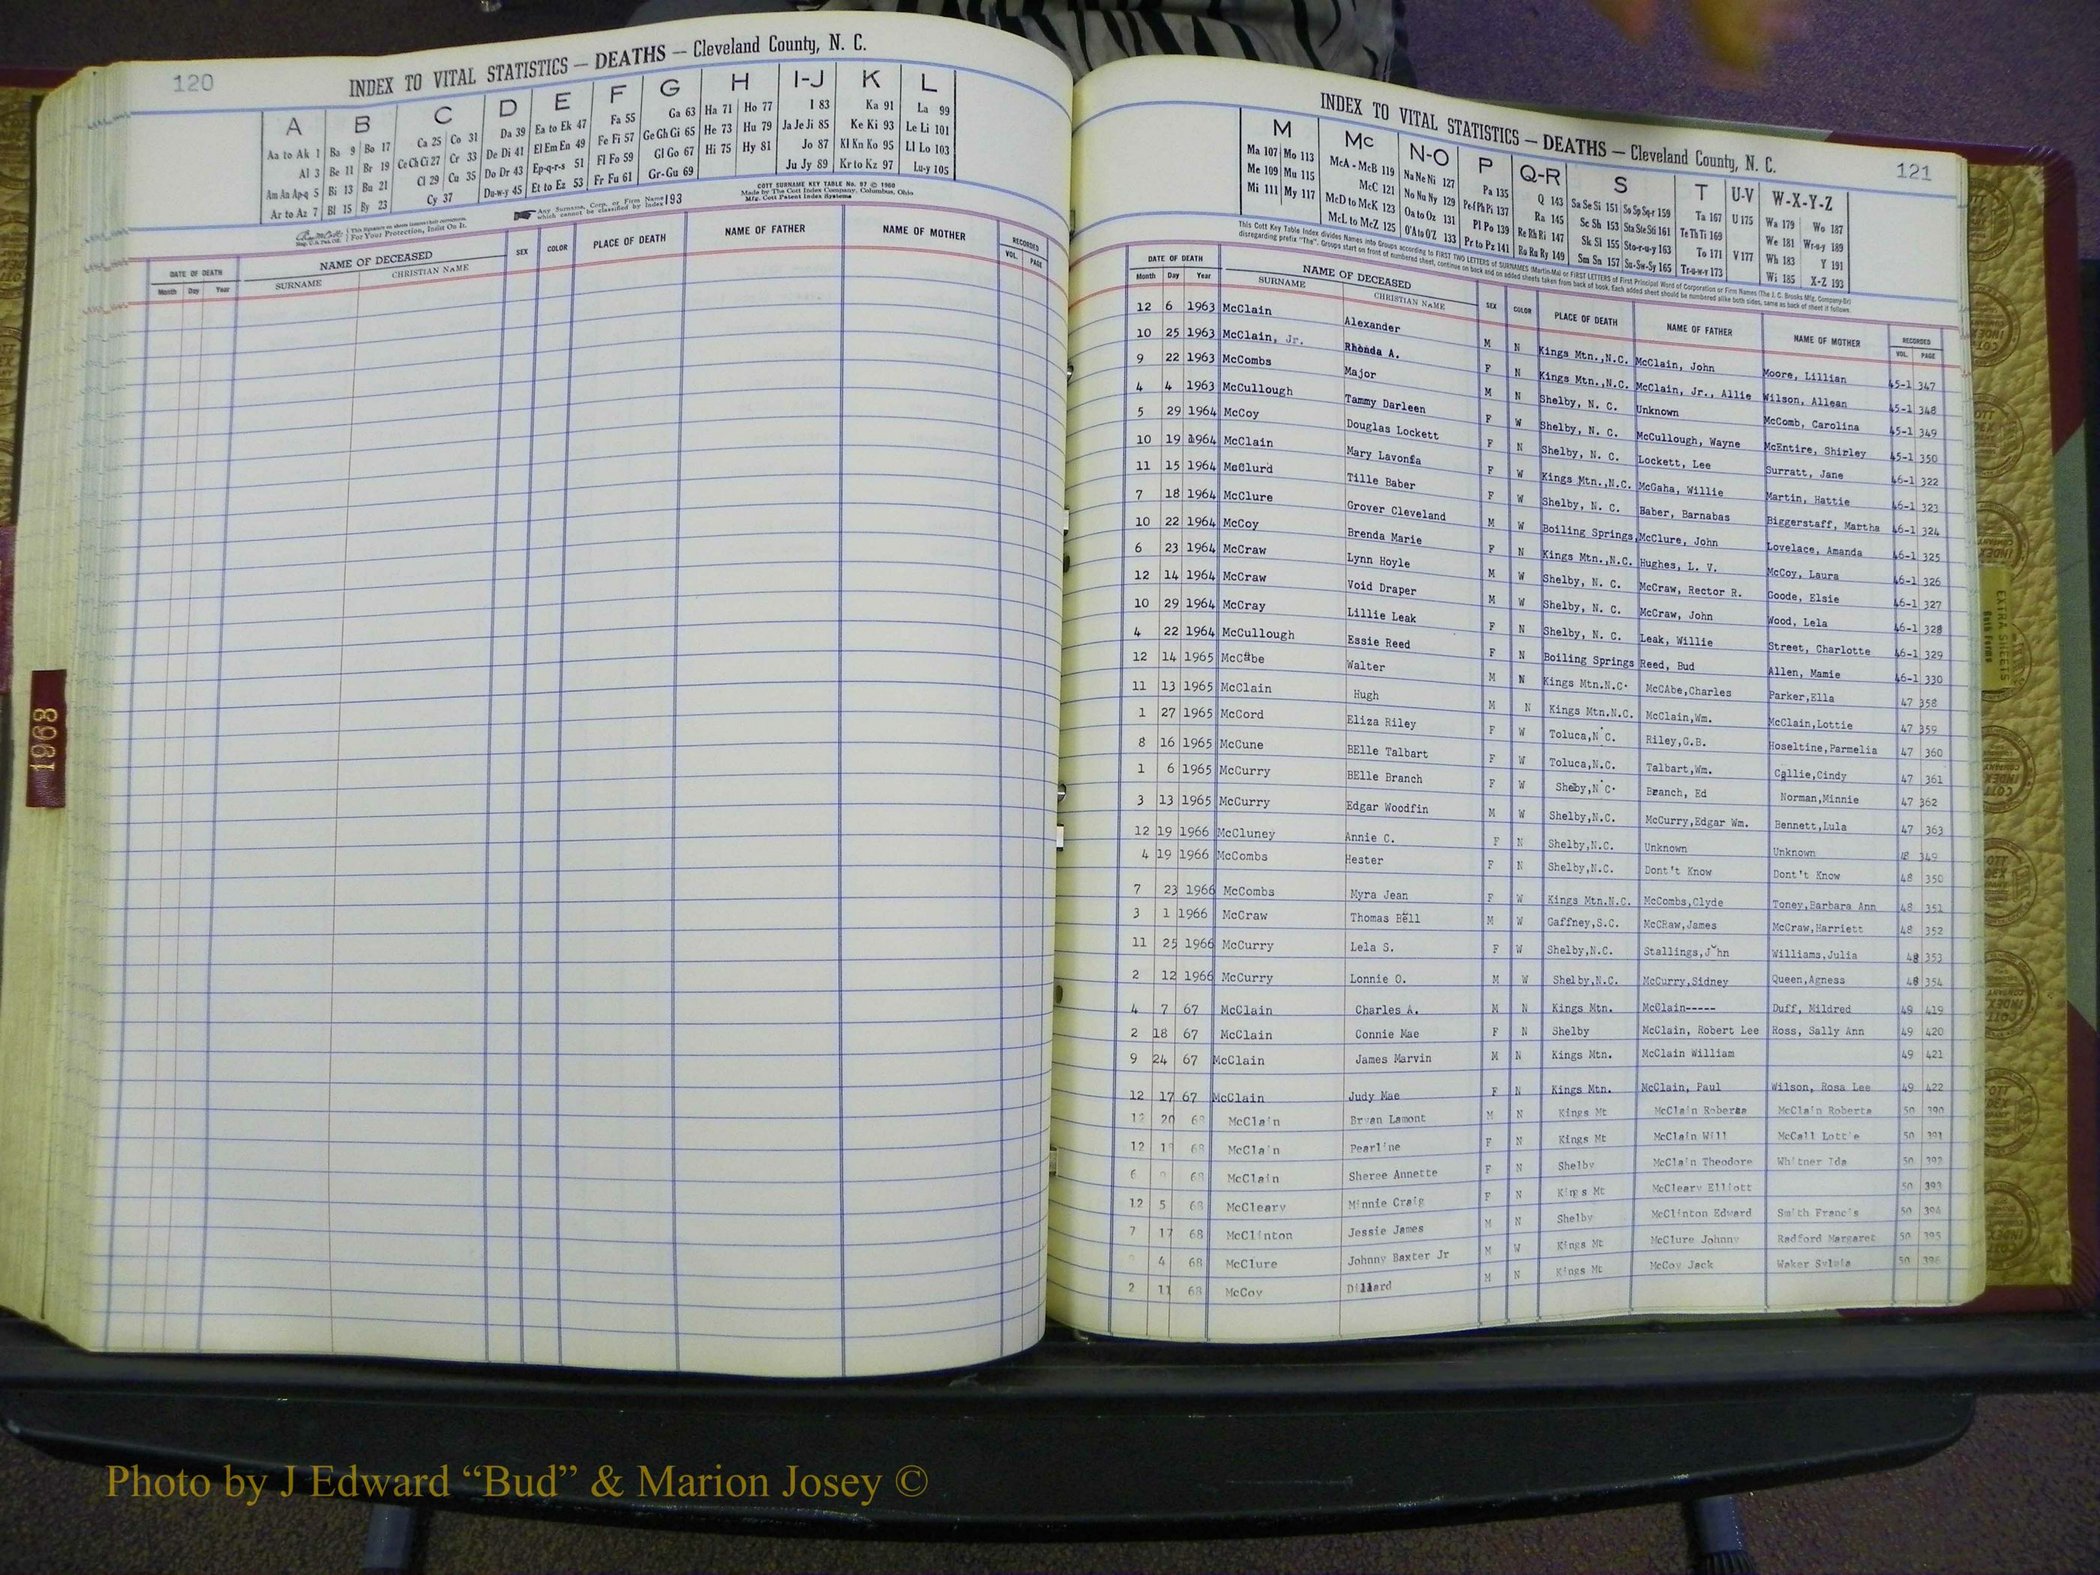 120
INDEX TO VITAL STATISTICS — DEATHS — Cleveland County, N. C.
A B C D E F G H I-J K L
Aa to Ak 1 Ba 9 Bo 17 Ca 25 Co 31 Da 39 Ea to Ek 47 Fa 55 Ga 63 Ha 71 Ho 77 I 83 Ka 91 La 99
Al 3 Be 11 Br 19 Ce Ch Ci 27 Cr 33 De Di 41 El Em En 49 Fe Fi 57 Ge Gh Gi 65 He 73 Hu 79 Ja Je Ji 85 Ke Ki 93 Le Li 101
Am An Ap-q 5 Bi 13 Bu 21 Cl 29 Cu 35 Do Dr 43 Ep-q-r-s 51 Fl Fo 59 Gl Go 67 Hi 75 Hy 81 Jo 87 Kl Kn Ko 95 Ll Lo 103
Ar to Az 7 Bl 15 By 23 Cy 37 Du-w-y 45 Et to Ez 53 Fr Fu 61 Gr-Gu 69 Ju Jy 89 Kr to Kz 97 Lu-y 105
For Your Protection, Insist On It.
Any Surname, Corp. or Firm Name which cannot be classified by Index 193
COTT SURNAME KEY TABLE No. 97 © 1960
Made by The Cott Index Company, Columbus, Ohio
Mfg. Cott Patent Index Systems
DATE OF DEATH NAME OF DECEASED SEX COLOR PLACE OF DEATH NAME OF FATHER NAME OF MOTHER RECORDED
Month Day Year SURNAME CHRISTIAN NAME VOL. PAGE
1968
121
INDEX TO VITAL STATISTICS — DEATHS — Cleveland County, N. C.
M Mc N-O P Q-R S T U-V W-X-Y-Z
Ma 107 Mo 113 McA - McB 119 Na Ne Ni 127 Pa 135 Q 143 Sa Se Si 151 So Sp Sq-r 159 Ta 167 U 175 Wa 179 Wo 187
Me 109 Mu 115 McC 121 No Nu Ny 129 Pe-f Ph Pi 137 Ra 145 Sc Sh 153 Sta Ste Sti 161 Te Th Ti 169 We 181 Wr-u-y 189
Mi 111 My 117 McD to McK 123 Oa to Oz 131 Pl Po 139 Re Rh Ri 147 Sk Sl 155 Sto-r-u-y 163 To 171 V 177 Wh 183 Y 191
McL to McZ 125 O'A to O'Z 133 Pr to Pz 141 Ro Ru Ry 149 Sm Sn 157 Su-Sw-Sy 165 Tr-u-w-y 173 Wi 185 X-Z 193
This Cott Key Table Index divides Names into Groups according to FIRST TWO LETTERS of SURNAMES (Martin-Ma) or FIRST LETTERS of First Principal Word of Corporation or Firm Names (The J. C. Brooks Mfg. Company-Br)
disregarding prefix "The". Groups start on front of numbered sheet, continue on back and on added sheets taken from back of book. Each added sheet should be numbered alike both sides, same as back of sheet it follows.
DATE OF DEATH NAME OF DECEASED SEX COLOR PLACE OF DEATH NAME OF FATHER NAME OF MOTHER RECORDED
Month Day Year SURNAME CHRISTIAN NAME VOL. PAGE
12 6 1963 McClain Alexander M N Kings Mtn.,N.C. McClain, John Moore, Lillian 45-1 347
10 25 1963 McClain, Jr. Rhonda A. F N Kings Mtn.,N.C. McClain, Jr., Allie Wilson, Allean 45-1 348
9 22 1963 McCombs Major M N Shelby, N. C. Unknown McComb, Carolina 45-1 349
4 4 1963 McCullough Tammy Darleen F W Shelby, N. C. McCullough, Wayne McEntire, Shirley 45-1 350
5 29 1964 McCoy Douglas Lockett F N Shelby, N. C. Lockett, Lee Surratt, Jane 46-1 322
10 19 1964 McClain Mary Lavonia F W Kings Mtn.,N.C. McGaha, Willie Martin, Hattie 46-1 323
11 15 1964 McClurd Tille Baber F W Shelby, N. C. Baber, Barnabas Biggerstaff, Martha 46-1 324
7 18 1964 McClure Grover Cleveland M W Boiling Springs, McClure, John Lovelace, Amanda 46-1 325
10 22 1964 McCoy Brenda Marie F N Kings Mtn.,N.C. Hughes, L. V. McCoy, Laura 46-1 326
6 23 1964 McCraw Lynn Hoyle M W Shelby, N. C. McCraw, Rector R. Goode, Elsie 46-1 327
12 14 1964 McCraw Void Draper M W Shelby, N. C. McCraw, John Wood, Lela 46-1 328
10 29 1964 McCray Lillie Leak F N Shelby, N. C. Leak, Willie Street, Charlotte 46-1 329
4 22 1964 McCullough Essie Reed F N Boiling Springs Reed, Bud Allen, Mamie 46-1 330
12 14 1965 McCabe Walter M N Kings Mtn.N.C. McCAbe,Charles Parker,Ella 47 358
11 13 1965 McClain Hugh M N Kings Mtn.N.C. McClain,Wm. McClain,Lottie 47 359
1 27 1965 McCord Eliza Riley F W Toluca,N.C. Riley,G.B. Hoseltine,Parmelia 47 360
8 16 1965 McCune BElle Talbart F W Toluca,N.C. Talbart,Wm. Callie,Cindy 47 361
1 6 1965 McCurry BElle Branch F W Shelby,N.C. Branch, Ed Norman,Minnie 47 362
3 13 1965 McCurry Edgar Woodfin M W Shelby,N.C. McCurry,Edgar Wm. Bennett,Lula 47 363
12 19 1966 McCluney Annie C. F N Shelby,N.C. Unknown Unknown 48 349
4 19 1966 McCombs Hester F N Shelby,N.C. Dont't Know Dont't Know 48 350
7 23 1966 McCombs Myra Jean F W Kings Mtn.N.C. McCombs,Clyde Toney,Barbara Ann 48 351
3 1 1966 McCraw Thomas Bell M W Gaffney,S.C. McCRaw,James McCraw,Harriett 48 352
11 25 1966 McCurry Lela S. F W Shelby,N.C. Stallings,John Williams,Julia 48 353
2 12 1966 McCurry Lonnie O. M W Shelby,N.C. McCurry,Sidney Queen,Agness 48 354
4 7 67 McClain Charles A. M N Kings Mtn. McClain----- Duff, Mildred 49 419
2 18 67 McClain Connie Mae F N Shelby McClain, Robert Lee Ross, Sally Ann 49 420
9 24 67 McClain James Marvin M N Kings Mtn. McClain William 49 421
12 17 67 McClain Judy Mae F N Kings Mtn. McClain, Paul Wilson, Rosa Lee 49 422
12 20 68 McClain Bryan Lamont M N Kings Mt McClain Roberta McClain Roberta 50 390
12 68 McClain Pearline F N Kings Mt McClain Will McCall Lottie 50 391
6 68 McClain Sheree Annette F N Shelby McClain Theodore Whitner Ida 50 392
12 5 68 McCleary Minnie Craig F N Kings Mt McCleary Elliott 50 393
7 17 68 McClinton Jessie James M N Shelby McClinton Edward Smith Francis 50 394
4 68 McClure Johnny Baxter Jr M W Kings Mt McClure Johnny Radford Margaret 50 395
2 11 68 McCoy Dillard M N Kings Mt McCoy Jack Waker Sylvia 50 396
EXTRA SHEETS
Photo by J Edward “Bud” & Marion Josey ©